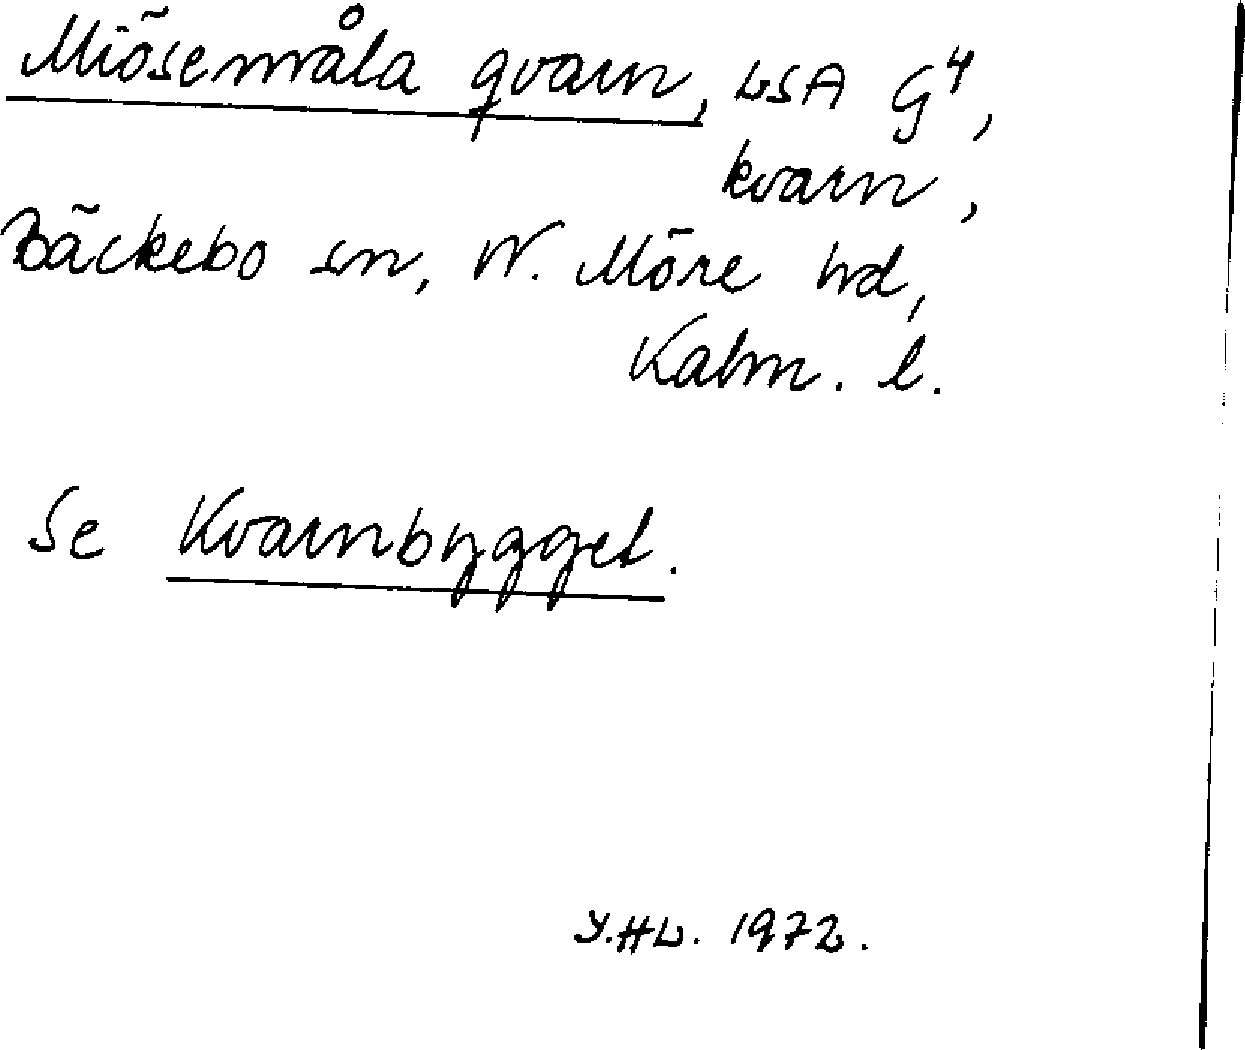 Miösenmåla qvarn, LSA G4,
kvarn,
Bäckebo sn, N. Möre hd,
Kalm. l.
Se Kvarnbygget.
Y.HL. 1972.